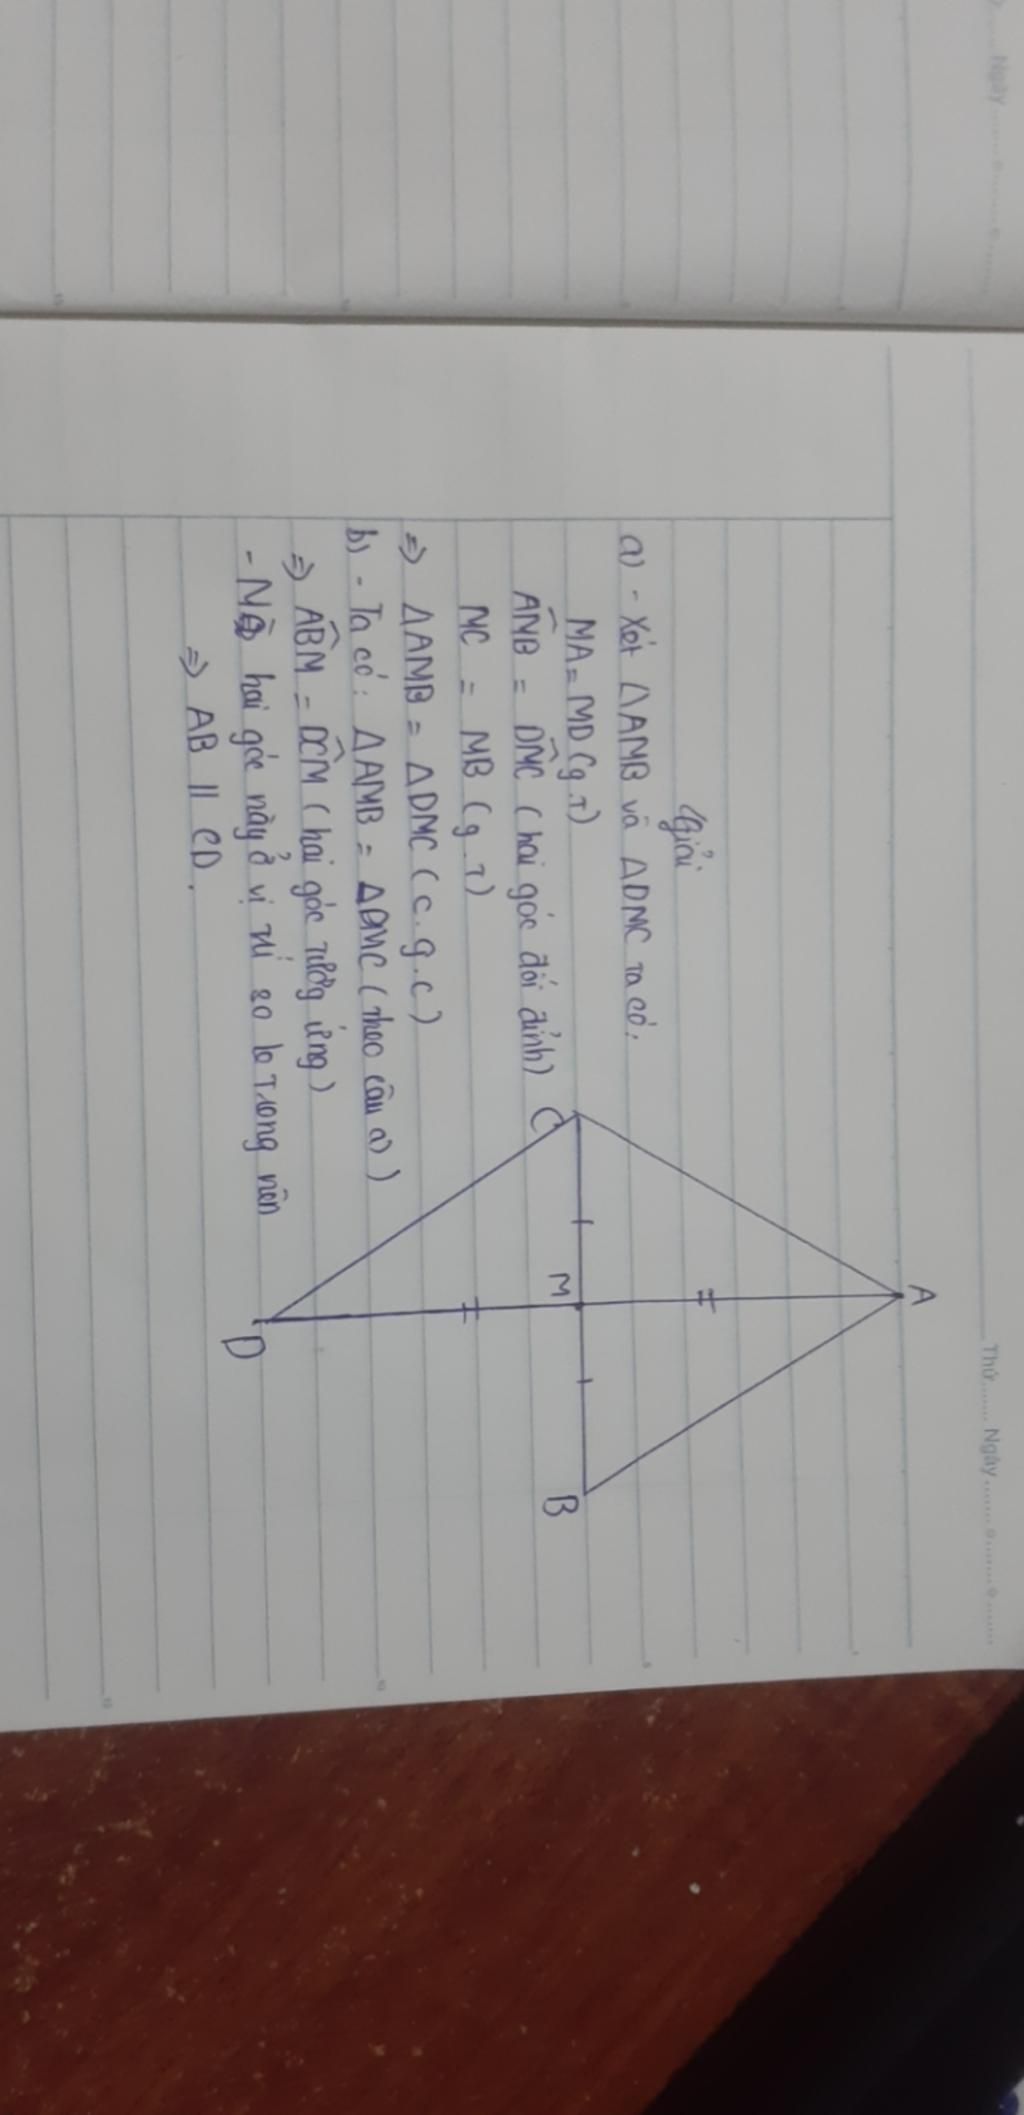 Ngày
Thứ........ Ngày ........
Giải
a) - Xét ΔAMB và ΔDMC ta có:
MA = MD (g.T)
AM̂B = DM̂C (hai góc đối đỉnh)
MC = MB (g.T)
=> ΔAMB = ΔDMC (c.g.c)
b) - Ta có: ΔAMB = ΔDMC (Theo câu a)
=> AB̂M = DĈM (hai góc tương ứng)
- hai góc này ở vị trí so le trong nên
=> AB // CD.
A
C
M
B
D